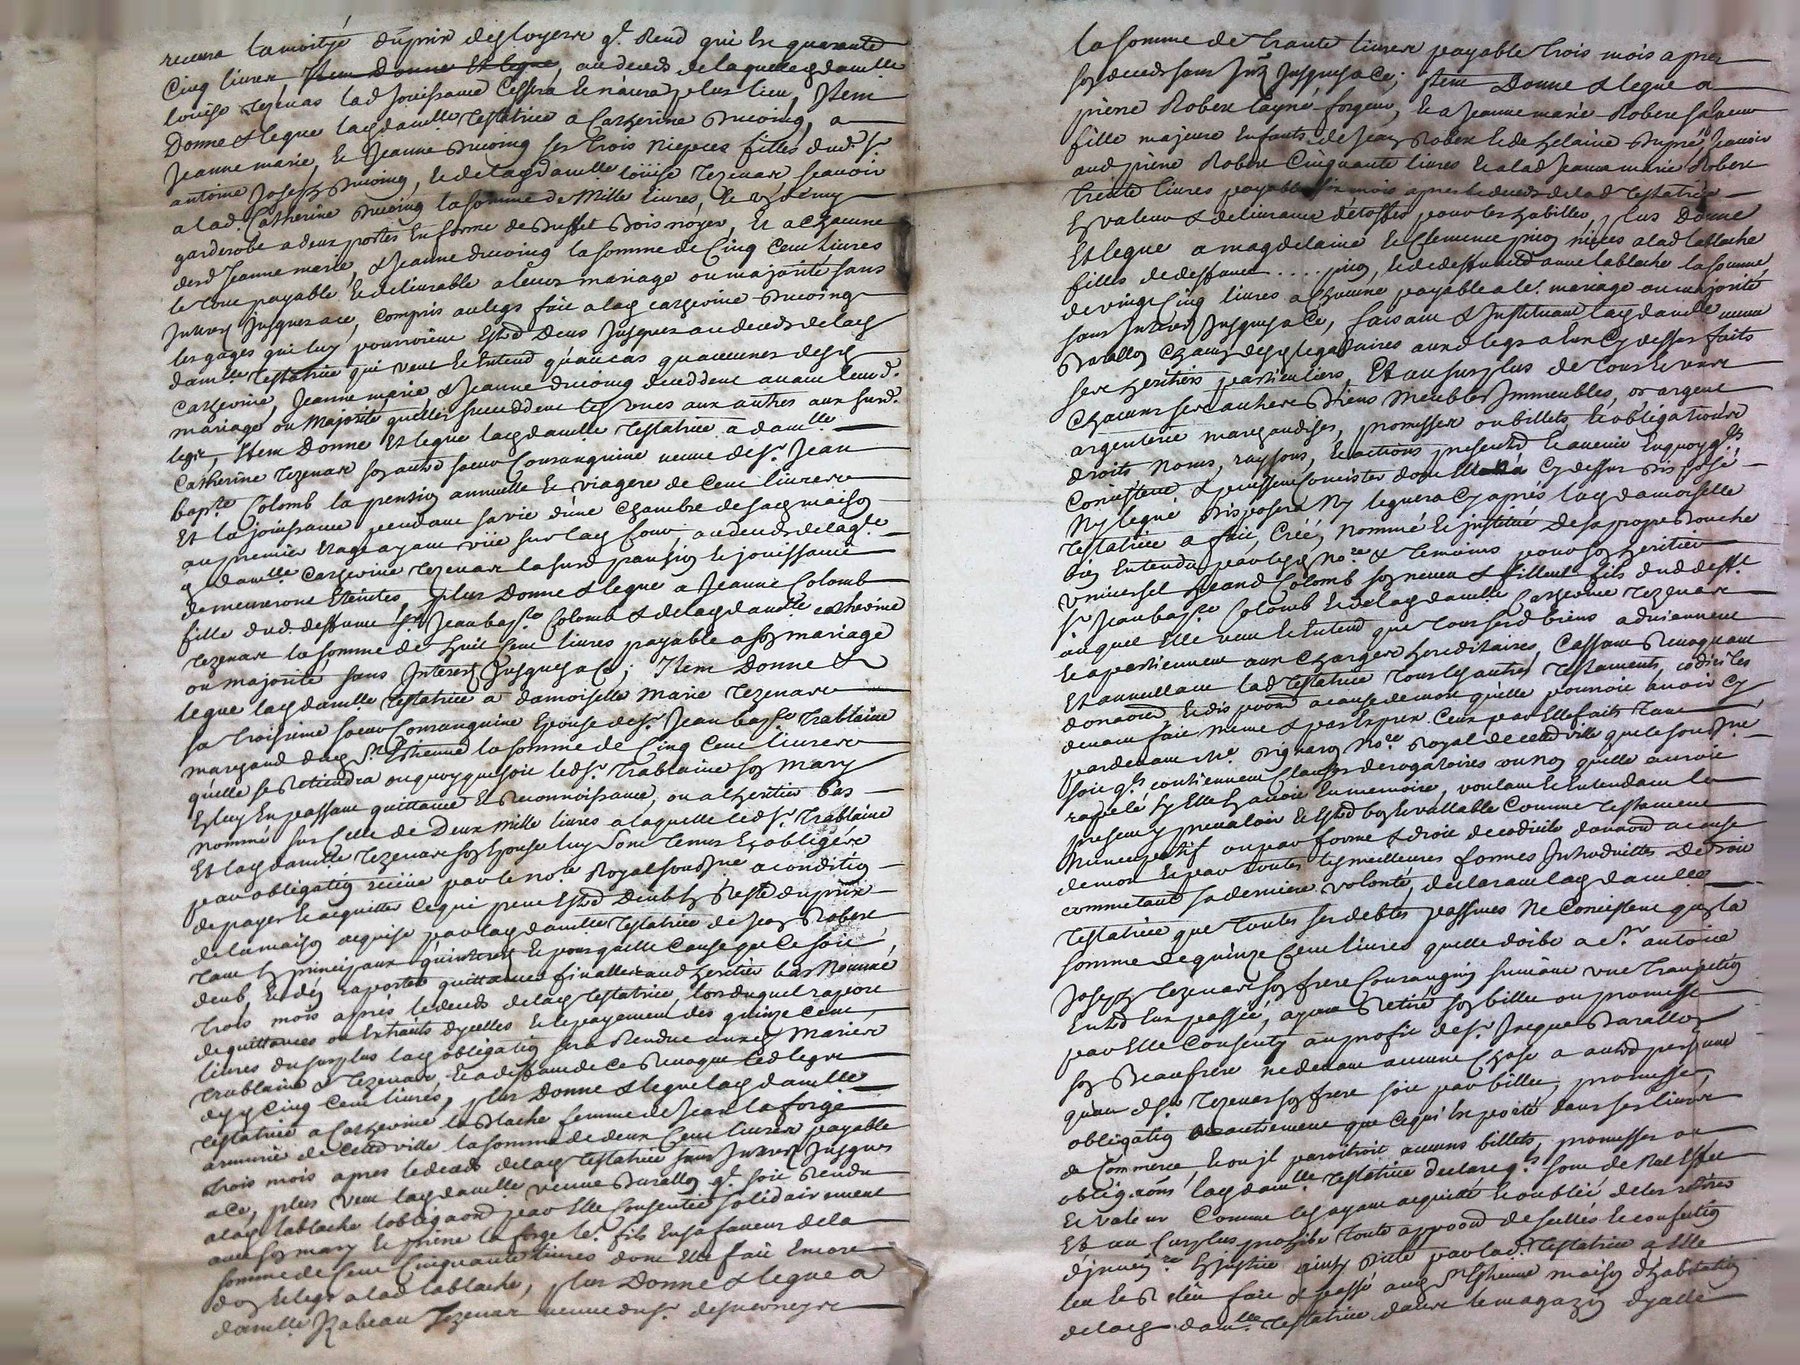 recevra la moitié du prix des loyers qt. Rend qui est quarante
Cinq livres, Item Donne et legue, au deceds de laquelle dlle damlle
louise Tezenas lad. jouissance Cessera et n'aura plus lieu, Item
Donne & legue lad. damlle Testatrice a Catherine Ducoing, a
Jeanne marie, et Jeanne Ducoing ses trois niepces filles dud. Sr.
antoine Joseph Ducoing, et de lad. damlle louise Tezenas sçavoir
a lad. Catherine Ducoing la somme de Mille livres, et une
garderobe a deux portes En forme de Buffet Bois noyer, et a chacune
desd. Jeanne marie, & Jeanne ducoing la somme de Cinq Cent livres
le tout payable, et delivrable a leurs mariage ou majorité sans
Interest Jusques a ce, compris au legs fait a lad. Catherine Ducoing
les gages qui luy pourroient Estre Deus Jusques au deceds de lad.
damlle Testatrice qui veut et Entend qu'au cas qu'aucunes desd.
Catherine, Jeanne marie, & Jeanne ducoing decedent avant leurd.
mariage ou Majorité qu'elles succedent les unes aux autres aux susd.
legs, Item Donne Et legue lad. damlle Testatrice a damlle
Catherine Tezenas sa autre soeur Consanguine veuve de Sr. Jean
bapte Colomb la pension annuelle et viagere de Cent livres
Et la jouissance pendant sa vie d'une Chambre de sad. maison
au premier Etage ayant vüe sur lad. Cour, au deceds de lad.
damlle Catherine Tezenas la susd. pension et jouissance
demeureront Eteintes, plus Donne & legue a Jeanne Colomb
fille dud. deffunt Sr. Jean bapte Colomb & de lad. damlle catherine
Tezenas la somme de huit Cent livres payable a son mariage
ou majorité sans Interest Jusques a Ce; Item Donne &
legue lad. damlle Testatrice a damoiselle Marie Tezenas
sa troisieme soeur Consanguine Epouse de Sr. Jean bapte Trablaine
marchand dud. St. Etienne la somme de Cinq Cent livres
qu'elle se Retiendra ou quoy que soit led. Sr. Trablaine son Mary
En luy En passant quittance et Reconnoissance, ou a l'heritier bas
nommé sur Celle de Deux Mille livres a laquelle led. Sr. Trablaine
Et lad. damlle Tezenas son Epouse luy sont Tenus Et obligés
par obligation reçüe par le nore. Royal soussigné a condition
de payer et acquitter Ce qui peut Estre Deub Reste du prix
de la maison acquise par lad. damlle Testatrice de Jean Robert
Tant En principaux qu'interest et pour quelle Cause que Ce soit,
deub, et d'en raporter quittances finalles aud. heritier bas Nommé
trois mois aprés le deceds de lad. Testatrice, lors duquel raport
de quittances ou Extraits d'ycelles et le payement des quinze Cent
livres du surplus lad. obligation sera Rendue auxd. Mariés
Trablaine & Tezenas, et a deffaut de ce Revoque led. legs
desd. Cinq Cent livres, plus Donne & legue lad. damlle
Testatrice a Catherine la Blache femme de Jean la forge
armurié de Cette ville la somme de deux Cent livres payable
trois mois apres le deceds de lad. Testatrice sans Interest Jusques
a Ce, plus veut lad. damlle veuve Barallon qt. soit Rendu
a lad. lablache l'obligation par Elle Consentie solidairement
avec son mary et pierre la forge le. fils En sa faveur de la
somme de Cent Cinquante livres dont Elle fait Encore
don et legs a lad. lablache, plus Donne & legue a
damlle Izabeau Tezenas veuve du Sr.
la somme de trante livres payable trois mois apres
son deceds sans Inst. Jusques a Ce; Item Donne & legue a
pierre Robert layné forgeur, et a Jeanne marie Robert sa soeur
fille majeure Enfants de Jean Robert et de helaine Dupré, sçavoir
aud. pierre Robert Cinquante livres et a lad. Jeanne marie Robert
Trente livres payable six mois apres le deceds de lad. Testatrice
En valeur & delivrance d'étoffes pour les habiller, plus donne
Et legue a magdelaine et Clemence pion nieces a lad. lablache
filles de deffunt .... pion, et de deffuncte anne lablache la somme
de vingt Cinq livres a chacune payable a leur mariage ou majorité
sans Interest Jusques a Ce, faisant & Instituant lad. damlle veuve
Barallon Chacun desd. legataires auxd. legs a Eux Cy dessus faits
ses heritiers particuliers, Et au surplus de tous et uns
Chacuns ses autres Biens Meubles Immeubles, or argent
argenterie marchandises, promesses ou billets, et obligations
droits Noms, raysons, et actions presents et avenir En quoy qls
Consistent & puissent Consister dont Elle n'a Cy dessus Disposé
Ny legué Disposera Ny leguera Cy aprés lad. damoiselle
Testatrice a fait, Créé, Nommé et jnstitué de sa propre Bouche
bien Entendue par led. Nore. & Temoins pour son heritier
Universel Colomb son neveu & filleul fils dud. deffunt
Sr. Jean bapte Colomb et de lad. damlle Catherine Tezenas
auquel Elle veut et Entend que tous sesd. biens adviennent
et apartiennent aux Charges hereditaires, Cassant Revoquant
Et annullant lad. Testatrice Tous les autres Testaments, codicilles
donations, et dispositions a cause de mort qu'elle pourroit avoir Cy
devant fait meme & par Exprez Ceux par Elle faits Tant
par devant Me. Pignaron Nore. Royal de Cette ville que le soussigné
soit qls contiennent Clauses derogatoires ou non qu'elle auroit
rapelé sy Elle En avoit En memoire, voulant et Entendant le
present prevaloir et Estre bon et vallable Comme Testament
Nuncupatif ou par forme & droit de codicile donation a cause
de mort et par toutes les meilleures formes Introduittes De droit
commettant sa derniere volonté, declarant lad. damlle
Testatrice que toutes ses debtes passives Ne Consistent qu'En la
somme de quinze Cent livres qu'elle doibt a Sr. antoine
Joseph Tezenas son frere Consanguin suivant une Transaction
Entre Eux passée, ayant Retiré son billet ou promesse
par Elle Consenty au profit de Sr. Jacque Barallon
son Beaufrere ne devant aucune Chose a autre personne
qu'au d. Sr. Tezenas son frere soit par billet, promesse,
obligation ou autrement que Ce qui Est porté dans ses livres
de Commerce, et ou jl paroitroit aucuns billets, promesses ou
obligations lad. damlle Testatrice declare qls sont de Nul Effet
Et valeur Comme les ayant acquitté et oublié de les retirer
Et au surplus prohibe toute apposition de scellés et confection
d'jnventre. Et justice ainsy Dicté par lad. Testatrice a Elle
leu et Releu fait & passé aud. St. Etienne maison d'habitation
de lad. damlle Testatrice dans le magazin d'ycelle